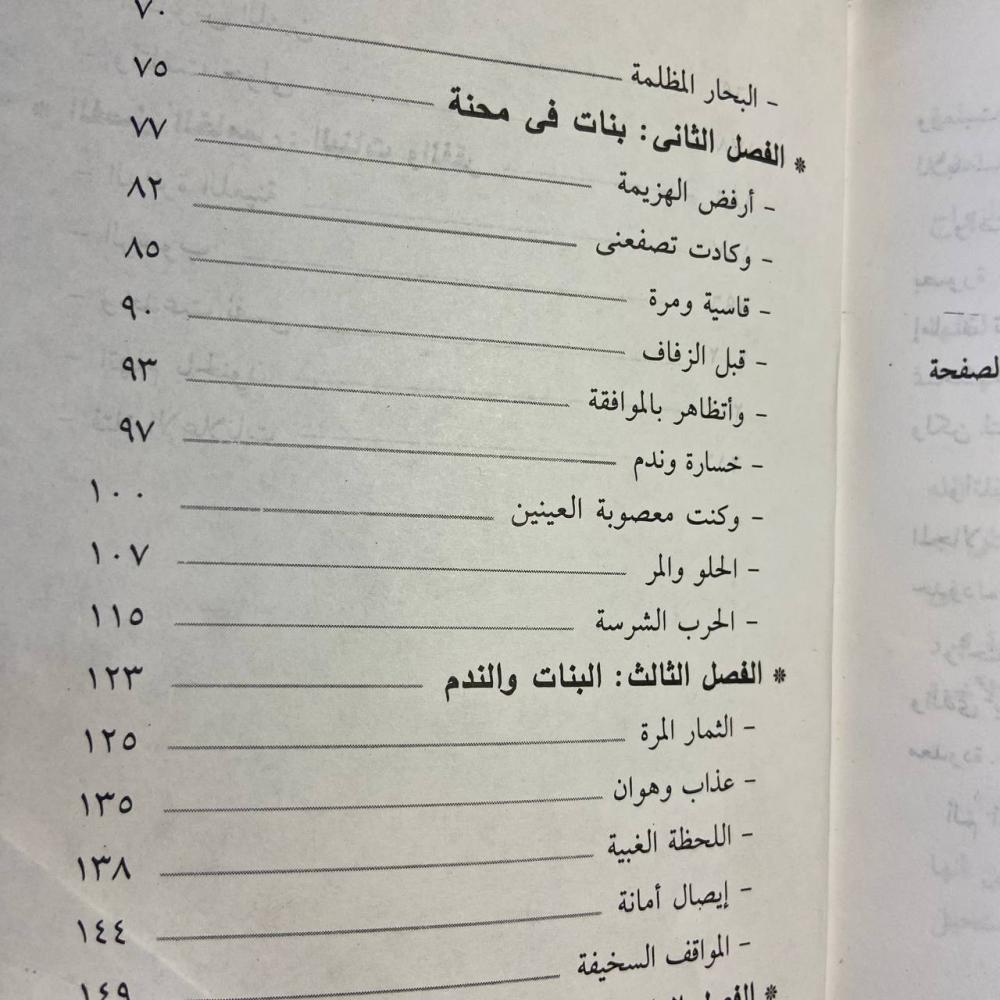 - البحار المظلمة ٧٠
* الفصل الثانى: بنات فى محنة ٧٥
- أرفض الهزيمة ٧٧
- وكادت تصفعنى ٨٢
- قاسية ومرة ٨٥
- قبل الزفاف ٩٠
- وأتظاهر بالموافقة ٩٣
- خسارة وندم ٩٧
- وكنت معصوبة العينين ١٠٠
- الحلو والمر ١٠٧
- الحرب الشرسة ١١٥
* الفصل الثالث: البنات والندم ١٢٣
- الثمار المرة ١٢٥
- عذاب وهوان ١٣٥
- اللحظة الغبية ١٣٨
- إيصال أمانة ١٤٤
- المواقف السخيفة ١٤٩
* الفصل
لصفحة